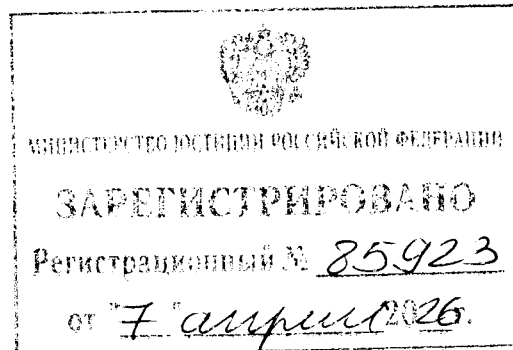 МИНИСТЕРСТВО ЮСТИЦИИ РОССИЙСКОЙ ФЕДЕРАЦИИ
ЗАРЕГИСТРИРОВАНО
Регистрационный № 85923
от "7" апреля 2026.